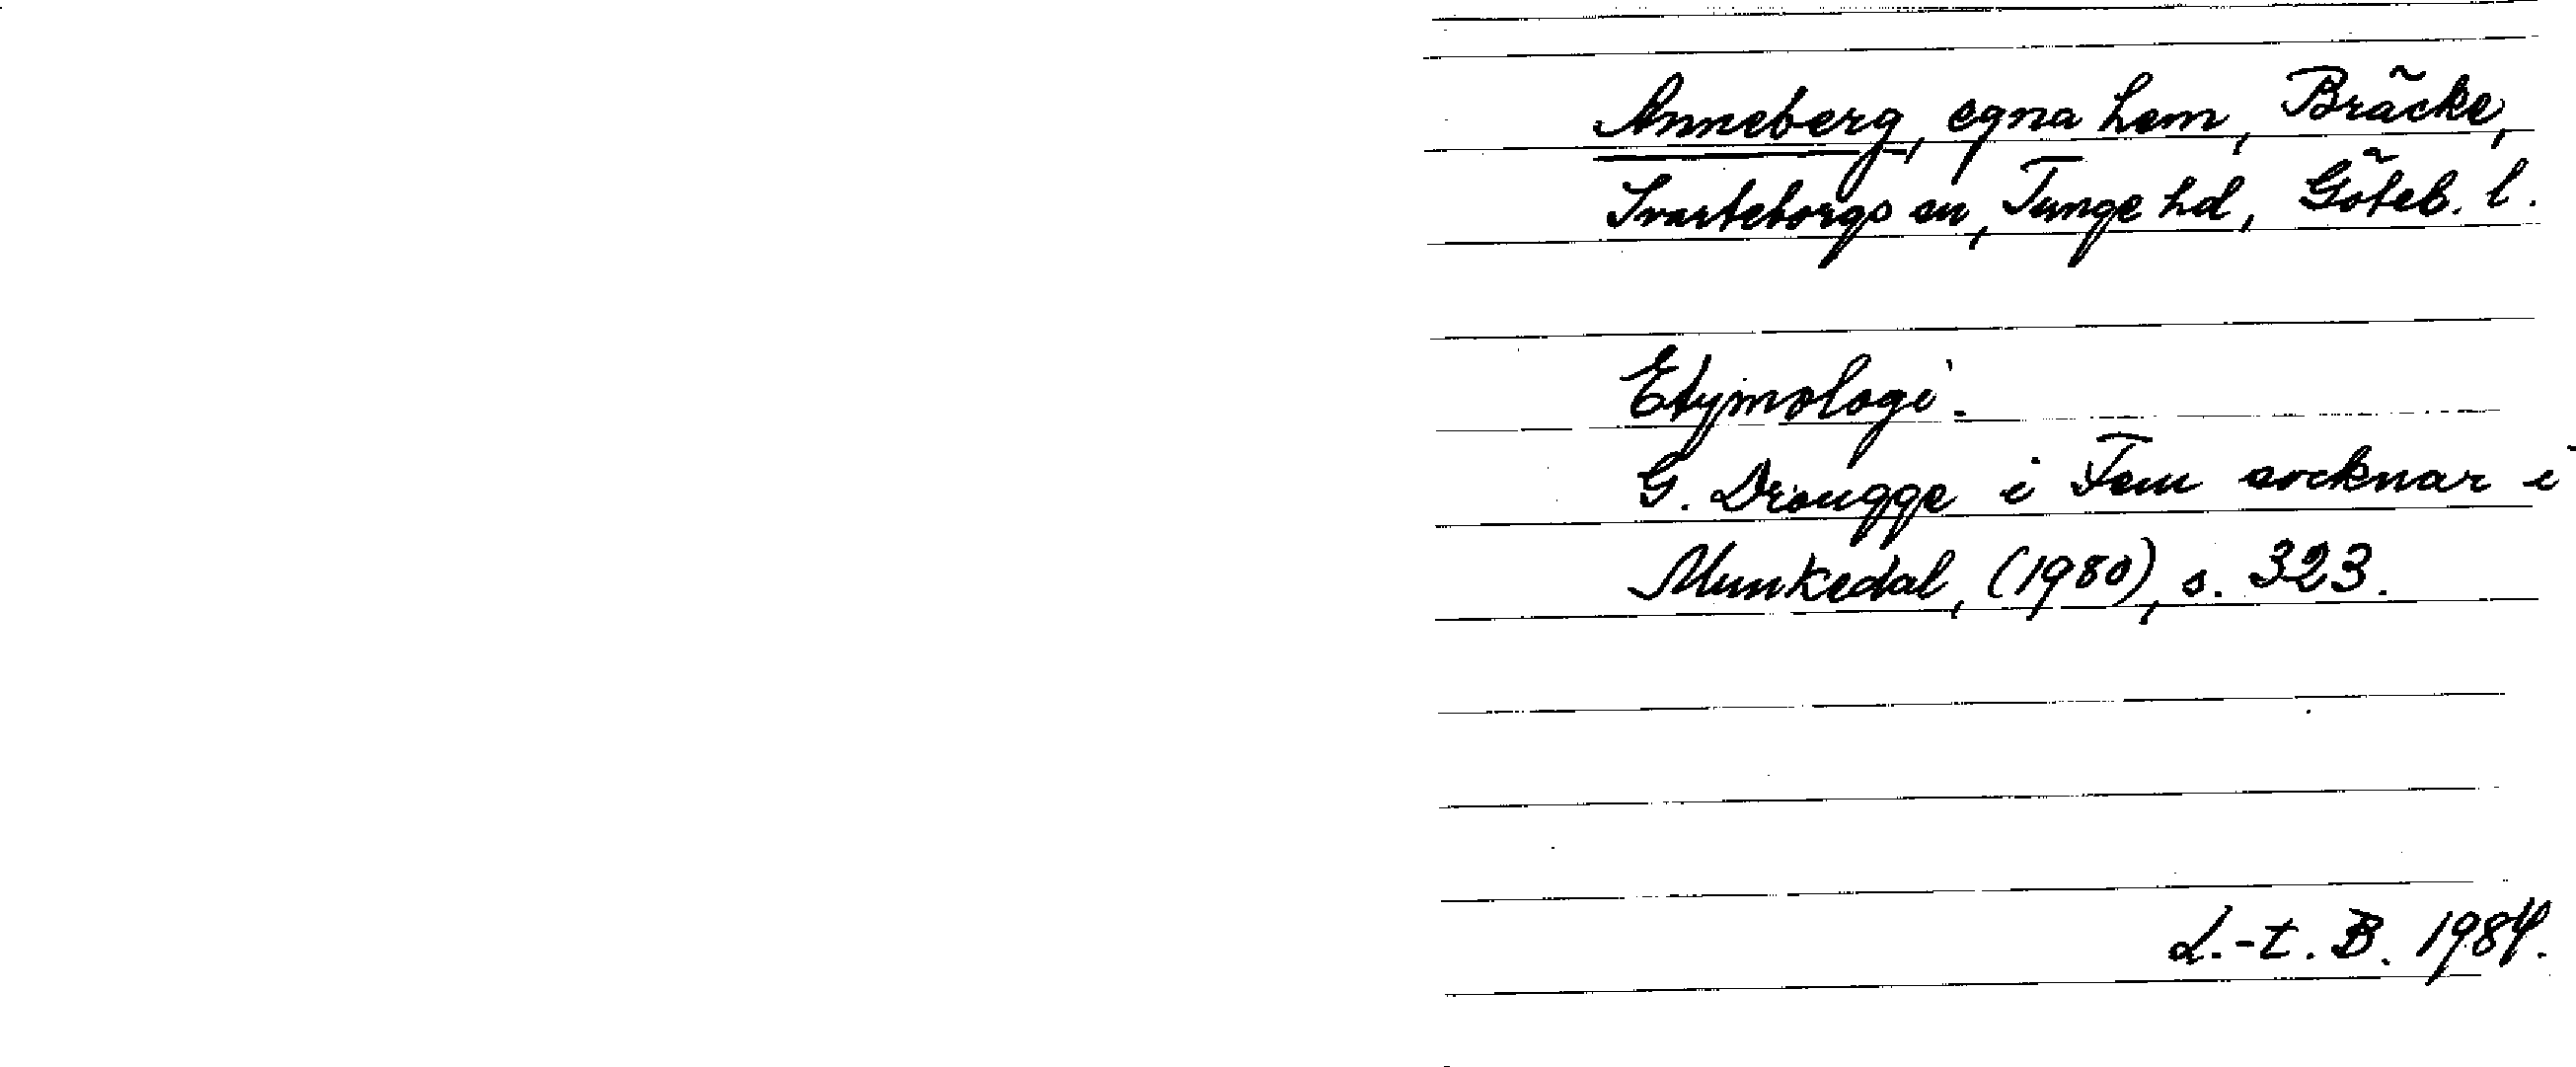 Anneberg, egna hem, Bräcke,
Svarteborgs sn, Tunge hd, Göteb. l.
Etymologi.
G. Drougge i Fem socknar i
Munkedal, (1980), s. 323.
L.-t. B. 1984.